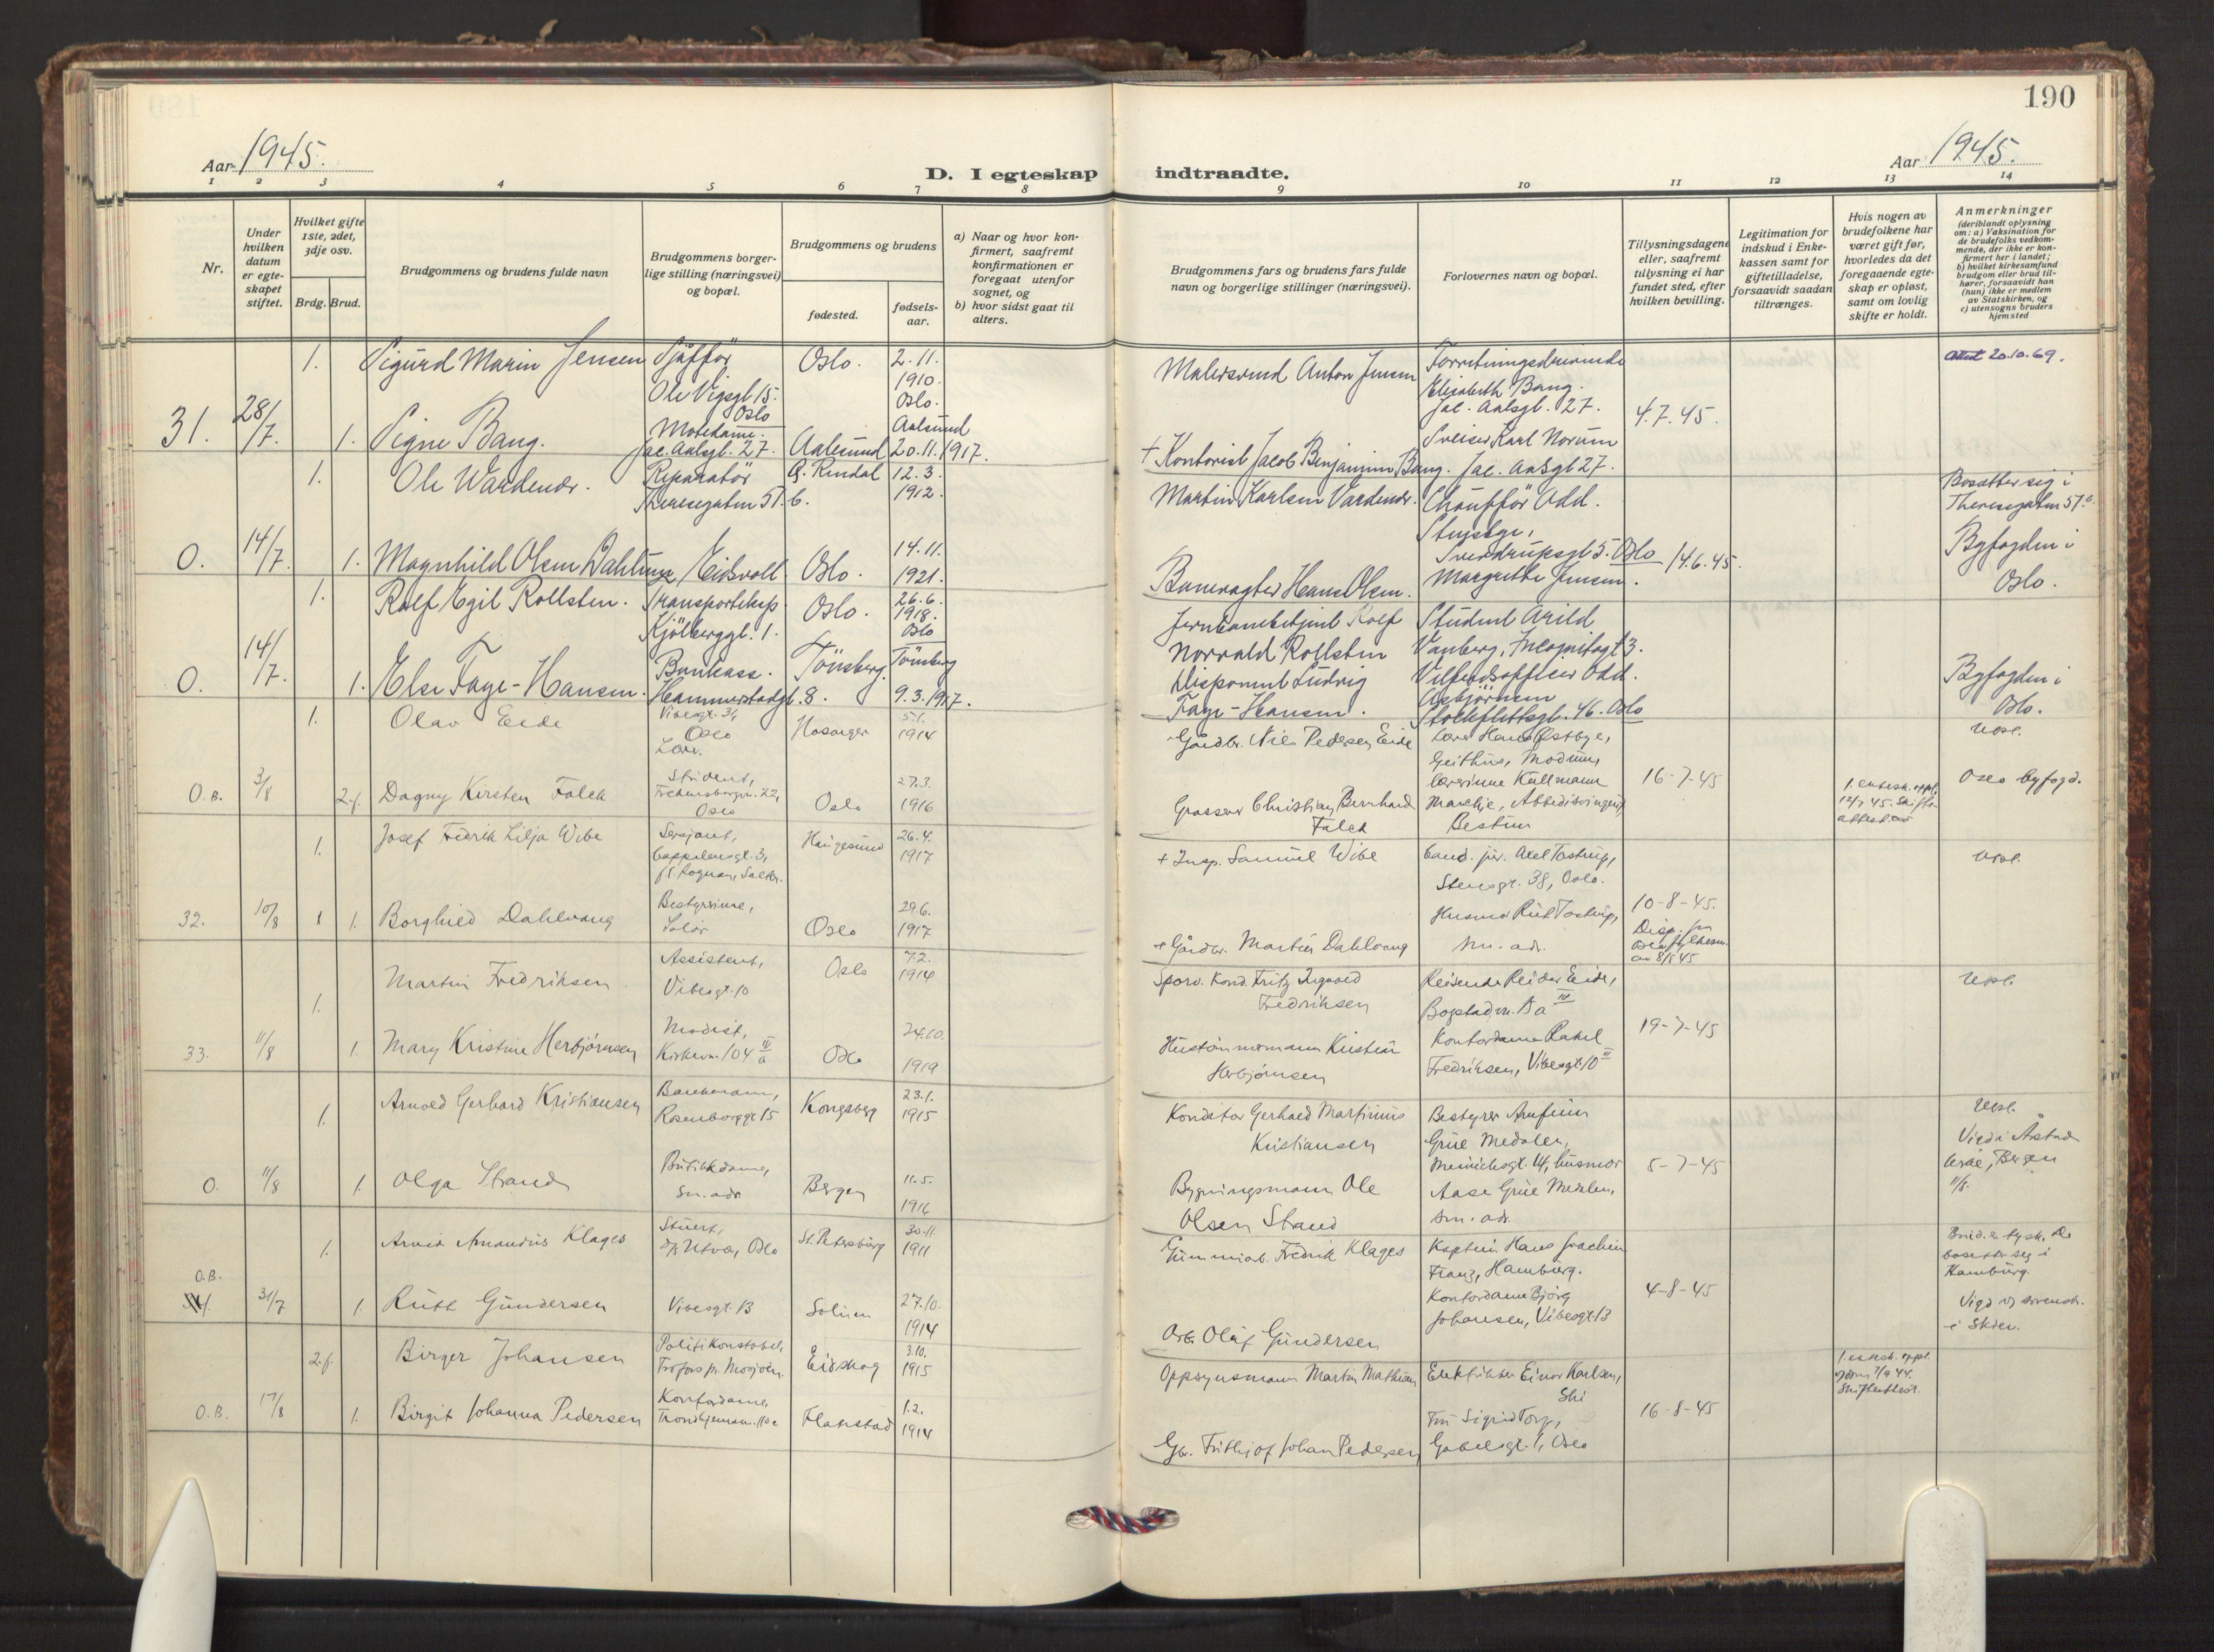 190
Aar 1945.
D. I egteskap indtraadte.
Aar 1945.
1 2 3 4 5 6 7 8 9 10 11 12 13 14
Nr.
Under hvilken datum er egte-skapet stiftet.
Hvilket gifte 1ste, 2det, 3dje osv.
Brdg. Brud.
Brudgommens og brudens fulde navn
Brudgommens borger-lige stilling (næringsvei) og bopæl.
Brudgommens og brudens
fødested.
fødsels-aar.
a) Naar og hvor kon-firmert, saafremt konfirmationen er foregaat utenfor sognet, og
b) hvor sidst gaat til alters.
Brudgommens fars og brudens fars fulde navn og borgerlige stillinger (næringsvei).
Forlovernes navn og bopæl.
Tillysningsdagene eller, saafremt tillysning ei har fundet sted, efter hvilken bevilling.
Legitimation for indskud i Enke-kassen samt for giftetilladelse, forsaavidt saadan tiltrænges.
Hvis nogen av brudefolkene har været gift før, hvorledes da det foregaaende egte-skap er opløst, samt om lovlig skifte er holdt.
Anmerkninger
(deriblandt oplysning om: a) Vaksination for de brudefolks vedkom-mende, der ikke er kon-firmert her i landet; b) hvilket kirkesamfund brudgom eller brud til-hører, forsaavidt han (hun) ikke er medlem av Statskirken, og c) utensogns bruders hjemsted
1. Sigurd Marin Jensen
Sjåffør
Ole Vigsgt 15.
Oslo
Oslo.
2.11.
1910.
Oslo.
Malersvend Anton Jensen
Forretningsdrivende
Elisabeth Bang.
Jac. Aalsgt. 27.
Attest 20.10.69.
31. 28/7. 1. Signe Bang.
Motedame.
Jac. Aalsgt. 27.
Aalesund
Aalesund
20.11.1917.
+ Kontorist Jacob Benjamin Bang.
Sveiser Karl Norum
Jac. Aalsgt 27.
4.7.45.
1. Ole Vardenær.
Reparatør
Theresegaten 51. b.
Rindal
12.3.
1912.
Martin Karlsen Vardenær.
Chauffør Odd.
Bosætter sig i
Theresegaten 51.
0. 14/7. 1. Magnhild Olsen Dahl
Eidsvoll
Oslo.
14.11.
1921.
Banevagter Hans Olsen.
Sverdrupsgt 5. Oslo
Margrethe Jensen.
14.6.45.
Byfogden i
Oslo.
1. Rolf Egil Rollsten.
Transporteksp.
Kjølberggt. 1.
Oslo.
26.6.
1918.
Oslo
Jernbanebetjent Rolf
Norvald Rollsten
Student Arild
Vamberg, Incognitogt 3.
0. 14/7. 1. Else Faye-Hansen.
Bankass.
Hammerstadgt. 8.
Tönsberg.
Tönsberg
9.3.1917.
Disponent Ludvig
Faye-Hansen.
Velferdsofficer Odd.
Asbjörnsen
Stockflethsgt. 46. Oslo
Byfogden i
Oslo.
1. Olav Eide
Vibesgt. 34
Oslo
Lærer.
Hosanger
5.1.
1914
Gårdbr. Nils Pedersen Eide
Lærer Hans Østbye,
Geithus, Modum,
Ugl.
O.B. 3/8 2.f. Dagny Kirsten Falck
Student,
Fredensborgvn. 22,
Oslo
Oslo
27.3.
1916
Grosserer Christian Bernhard
Falck
Lærerinne Kallmann
Bestum
16-7-45
Oslo byfogd.
1. Josef Fredrik Lilja Wibe
Sersjant,
Cappelensgt. 3,
f.t. Rognan, Salten.
Haugesund
26.4.
1917
+ Insp. Samuel Wibe
Cand. jur. Axel Tostrup,
Stensgt. 38, Oslo.
Ugl.
32. 10/8 1. Borghild Dahlvang
Bestyrerinne,
Solør
Oslo
29.6.
1917
+ Gårdbr. Martin Dahlvang
Husmor Rut Tostrup,
sm. adr.
10-8-45.
Disp. fra
1. Martin Fredriksen
Assistent,
Vibesgt. 10
Oslo
7.2.
1914
Sporv. Kond. Fritz Ingvald
Fredriksen
Reisende Reidar Eide,
Ugl.
33. 11/8 1. Mary Kristine Herbjørnsen
Modist,
Kirkevn. 104 a IV
Oslo
24.10.
1919
Hustømmermann Kristian
Herbjørnsen
Kontordame Rakel
Fredriksen, Vibesgt 10 III
19-7-45
1. Arnold Gerhard Kristiansen
Bankmann,
Rosenborggt 15
Kongsberg
23.1.
1915
Konditor Gerhard Martinius
Kristiansen
Bestyrer Arnfinn
Grue Medalen,
Ugl.
Viet i Årstad
kirke, Bergen
11/8.
0. 11/8 1. Olga Strand
Butikkdame,
sm. adr
Bergen
11.5.
1916
Bygningsmann Ole
Olsen Strand
Meinichsgt. 14, husmor
Aase Grue Medalen,
sm. adr.
5-7-45
1. Arvid Amandus Klages
Stuert,
D/S Utvær, Oslo
St. Petersburg
30.11.
1911
Gummiarb. Fredrik Klages
Kaptein Hans Joachim
Franz, Hamburg.
bosetter seg i
Hamburg.
O.B. 31/7 1. Ruth Gundersen
Vibesgt. 13
Solum
27.10.
1914
Arb. Olaf Gundersen
Kontordame Bjørg
Johansen, Vibesgt 13
4-8-45
i Skien.
2.f. Birger Johansen
Politikonstabel,
Trofors pr. Mosjøen.
Eidskog
3.10.
1915
Oppsynsmann Martin Mathisen
Elektriker Einar Karlsen,
Ski
1. ektesk. oppl.
Skifteattest.
O.B. 17/8 1. Birgit Johanna Pedersen
Kontordame,
Flakstad
1.2.
1914
Gbr. Frithjof Johan Pedersen
Fru Sigrid Torp,
Gabelsgt. 1, Oslo
16-8-45